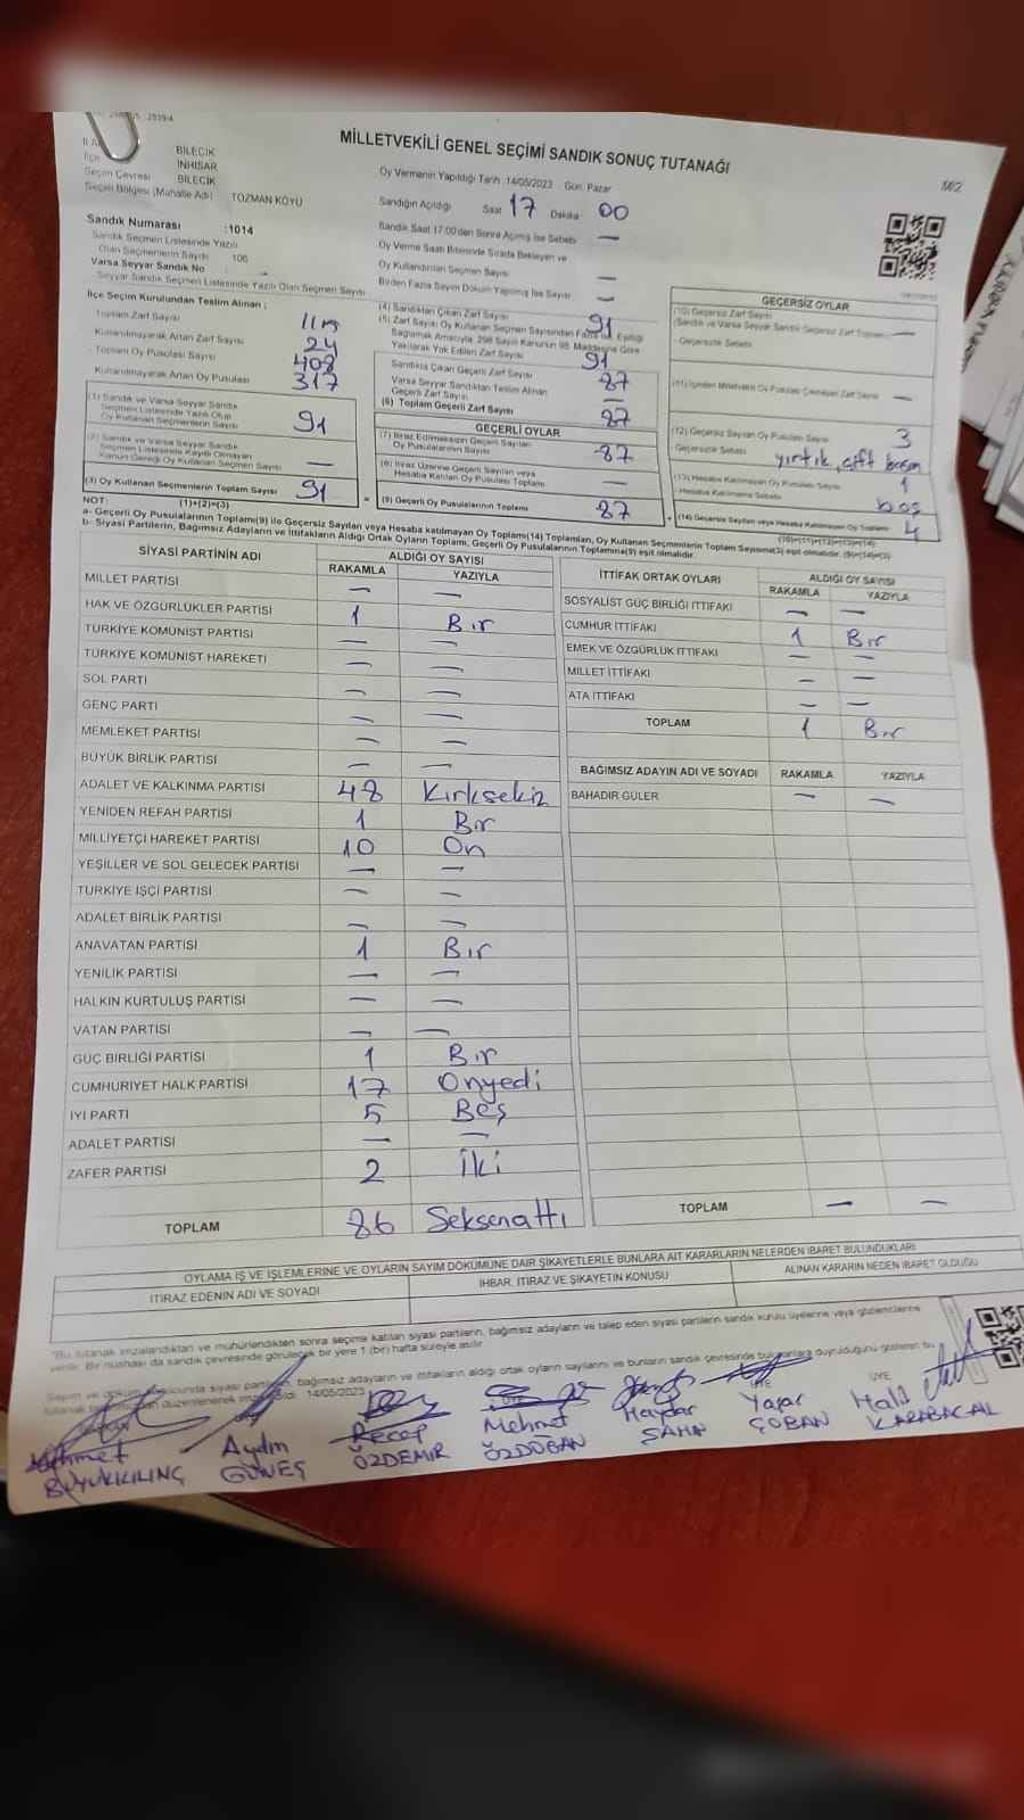 MİLLETVEKİLİ GENEL SEÇİMİ SANDIK SONUÇ TUTANAĞI
İlçe
Seçim Çevresi
Seçim Bölgesi (Mahalle Adı)
BİLECİK
İNHİSAR
BİLECİK
TOZMAN KÖYÜ
M/2
Oy Vermenin Yapıldığı Tarih :14/05/2023 Gün: Pazar
Sandığın Açıldığı Saat 17 Dakika 00
Sandık Saat 17:00'den Sonra Açılmış İse Sebebi —
Oy Verme Saati Bitiminde Sırada Bekleyen ve
Oy Kullandırılan Seçmen Sayısı —
Birden Fazla Sayım Döküm Yapılmış İse Sayısı —
Sandık Numarası :1014
Sandık Seçmen Listesinde Yazılı
Olan Seçmenlerin Sayısı 106
Varsa Seyyar Sandık No :
Seyyar Sandık Seçmen Listesinde Yazılı Olan Seçmen Sayısı
İlçe Seçim Kurulundan Teslim Alınan :
Toplam Zarf Sayısı
Kullanılmayarak Artan Zarf Sayısı 24
Toplam Oy Pusulası Sayısı 408
Kullanılmayarak Artan Oy Pusulası 317
(1) Sandık ve Varsa Seyyar Sandık
Seçmen Listesinde Yazılı Olup
Oy Kullanan Seçmenlerin Sayısı 91
(2) Sandık ve Varsa Seyyar Sandık
Seçmen Listesinde Kayıtlı Olmayan
Kanun Gereği Oy Kullanan Seçmen Sayısı —
(3) Oy Kullanan Seçmenlerin Toplam Sayısı 91
(1)+(2)=(3)
(4) Sandıktan Çıkan Zarf Sayısı 91
(5) Zarf Sayısı Oy Kullanan Seçmen Sayısından Fazla ise, Eşitliği
Sağlamak Amacıyla 298 Sayılı Kanunun 98. Maddesine Göre
Yakılarak Yok Edilen Zarf Sayısı 91
Sandıkta Çıkan Geçerli Zarf Sayısı 87
Varsa Seyyar Sandıktan Teslim Alınan
Geçerli Zarf Sayısı —
(6) Toplam Geçerli Zarf Sayısı 87
GEÇERLİ OYLAR
(7) İtiraz Edilmeksizin Geçerli Sayılan
Oy Pusulalarının Sayısı 87
(8) İtiraz Üzerine Geçerli Sayılan veya
Hesaba Katılan Oy Pusulası Toplamı —
(9) Geçerli Oy Pusulalarının Toplamı 87
GEÇERSİZ OYLAR
(10) Geçersiz Zarf Sayısı
(Sandık ve Varsa Seyyar Sandık Geçersiz Zarf Toplamı) —
Geçersizlik Sebebi
(12) Geçersiz Sayılan Oy Pusulası Sayısı 3
Geçersizlik Sebebi yırtık, çift basım
(13) Hesaba Katılmayan Oy Pusulası Sayısı 1
Hesaba Katılmama Sebebi boş
(14) Geçersiz Sayılan veya Hesaba Katılmayan Oy Toplamı 4
(10)+(11)+(12)+(13)=(14)
NOT:
a- Geçerli Oy Pusulalarının Toplamı(9) ile Geçersiz Sayılan veya Hesaba katılmayan Oy Toplamı(14) Toplamları, Oy Kullanan Seçmenlerin Toplam Sayısına(3) eşit olmalıdır. (9)+(14)=(3)
b- Siyasi Partilerin, Bağımsız Adayların ve İttifakların Aldığı Ortak Oyların Toplamı, Geçerli Oy Pusulalarının Toplamına(9) eşit olmalıdır.
SİYASİ PARTİNİN ADI ALDIĞI OY SAYISI
RAKAMLA YAZIYLA
MİLLET PARTİSİ — —
HAK VE ÖZGÜRLÜKLER PARTİSİ 1 Bir
TÜRKİYE KOMÜNİST PARTİSİ — —
TÜRKİYE KOMÜNİST HAREKETİ — —
SOL PARTİ — —
GENÇ PARTİ — —
MEMLEKET PARTİSİ — —
BÜYÜK BİRLİK PARTİSİ — —
ADALET VE KALKINMA PARTİSİ 48 Kırksekiz
YENİDEN REFAH PARTİSİ 1 Bir
MİLLİYETÇİ HAREKET PARTİSİ 10 On
YEŞİLLER VE SOL GELECEK PARTİSİ — —
TÜRKİYE İŞÇİ PARTİSİ — —
ADALET BİRLİK PARTİSİ — —
ANAVATAN PARTİSİ 1 Bir
YENİLİK PARTİSİ — —
HALKIN KURTULUŞ PARTİSİ — —
VATAN PARTİSİ — —
GÜÇ BİRLİĞİ PARTİSİ 1 Bir
CUMHURİYET HALK PARTİSİ 17 Onyedi
İYİ PARTİ 5 Beş
ADALET PARTİSİ — —
ZAFER PARTİSİ 2 İki
TOPLAM 86 Seksenaltı
İTTİFAK ORTAK OYLARI ALDIĞI OY SAYISI
RAKAMLA YAZIYLA
SOSYALİST GÜÇ BİRLİĞİ İTTİFAKI — —
CUMHUR İTTİFAKI 1 Bir
EMEK VE ÖZGÜRLÜK İTTİFAKI — —
MİLLET İTTİFAKI — —
ATA İTTİFAKI — —
TOPLAM 1 Bir
BAĞIMSIZ ADAYIN ADI VE SOYADI RAKAMLA YAZIYLA
BAHADIR GÜLER — —
TOPLAM — —
OYLAMA İŞ VE İŞLEMLERİNE VE OYLARIN SAYIM DÖKÜMÜNE DAİR ŞİKAYETLERLE BUNLARA AİT KARARLARIN NELERDEN İBARET BULUNDUKLARI
İTİRAZ EDENİN ADI VE SOYADI İHBAR, İTİRAZ VE ŞİKAYETİN KONUSU ALINAN KARARIN NEDEN İBARET OLDUĞU
"Bu tutanak imzalandıktan ve mühürlendikten sonra seçime katılan siyasi partilerin, bağımsız adayların ve talep eden siyasi partilerin sandık kurulu üyelerine veya gözlemcilerine
verilir. Bir nüshası da sandık çevresinde görülecek bir yere 1 (bir) hafta süreyle asılır.
14/05/2023
ÜYE
Ahmet BÜYÜKKILINÇ
Aydın GÜNEŞ
Recep ÖZDEMİR
Mehmet ÖZDOĞAN
Haydar ŞAHİN
Yaşar ÇOBAN
Halil KARABACAL